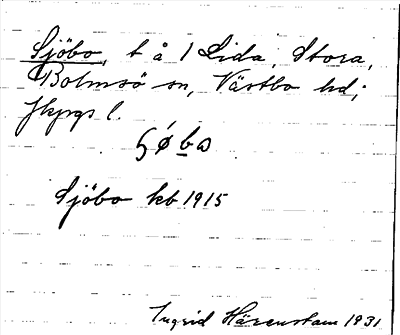 Sjöbo, t å 1 Lida, Stora,
Bolmsö sn, Västbo hd,
Jkpgs l.
ʃǿbω
Sjöbo kb 1915
Ingrid Härenstam 1931